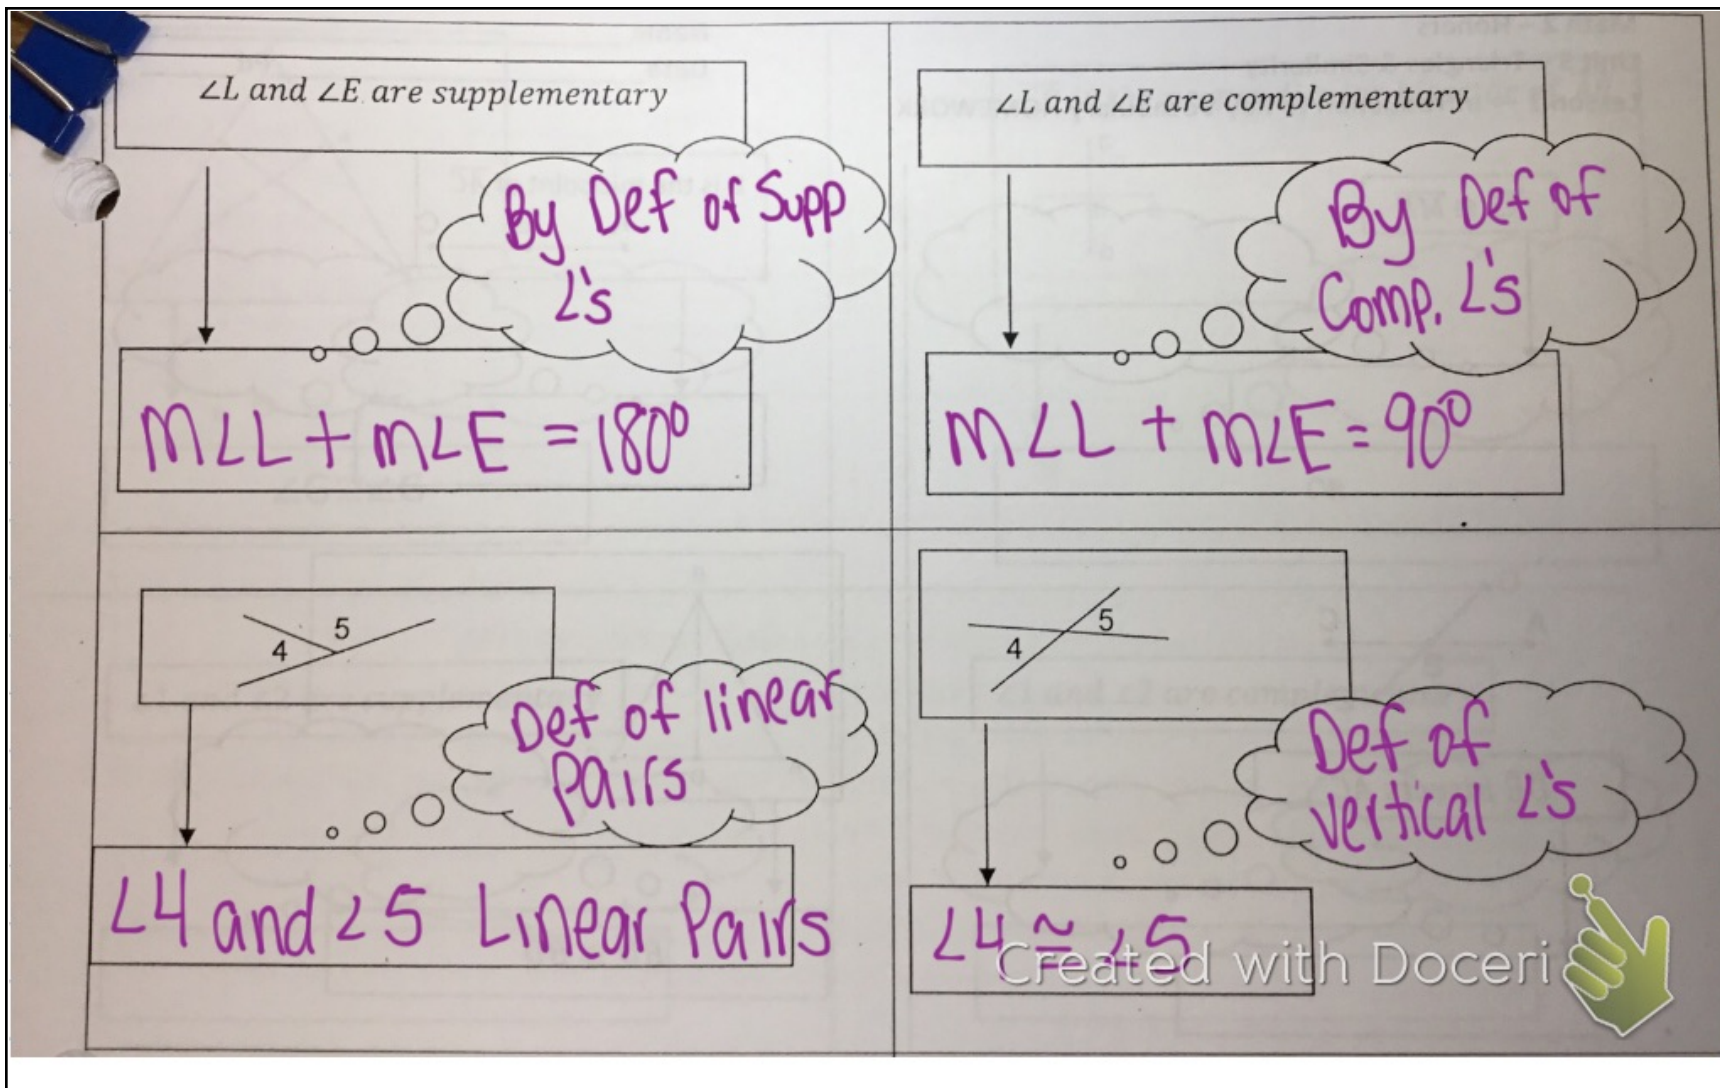 ∠L and ∠E are supplementary
By Def of Supp
∠'s
m∠L + m∠E = 180°
∠L and ∠E are complementary
By Def of
Comp. ∠'s
m∠L + m∠E = 90°
5
4
Def of linear
pairs
∠4 and ∠5 Linear Pairs
5
4
Def of
vertical ∠'s
∠4 ≅ ∠5
Created with Doceri